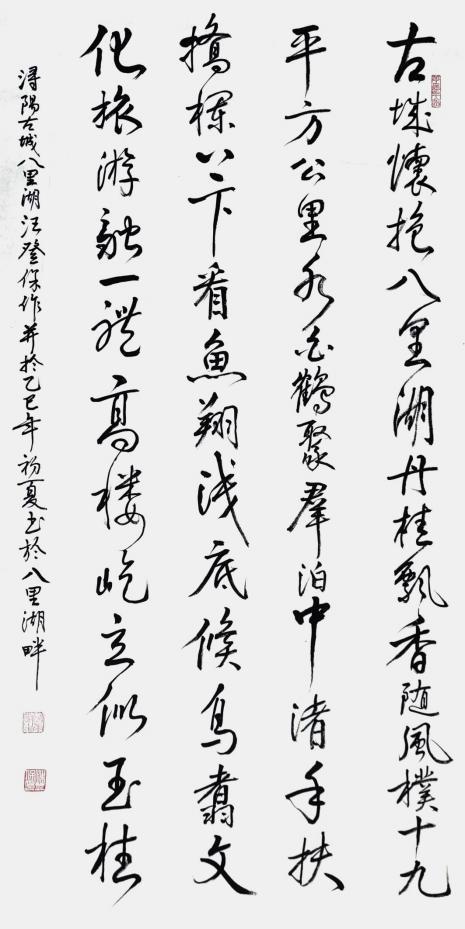 古城懷抱八里湖丹桂飄香随風撲十九
平方公里水白鶴聚羣泊中渚手扶
橋欄以下看魚翔浅底候鳥翥文
化旅游融一體高楼屹立似玉柱
浔陽古城八里湖汪登保作并於乙巳年初夏书於八里湖畔